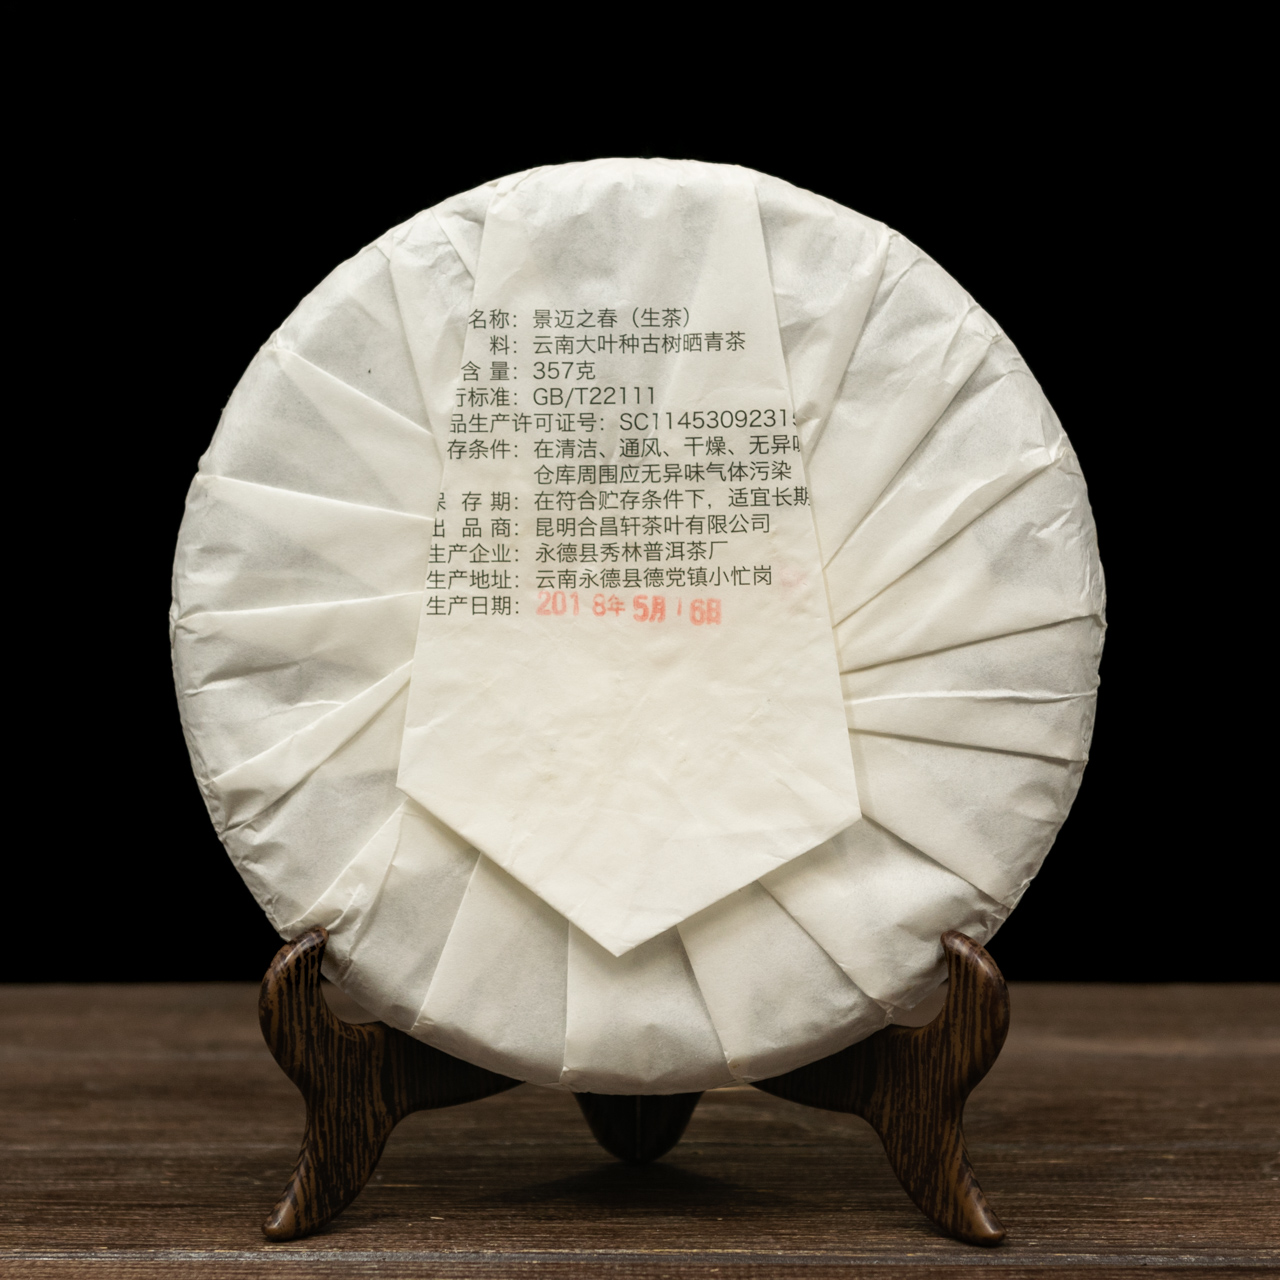 名称：景迈之春（生茶）
料：云南大叶种古树晒青茶
含 量：357克
行标准：GB/T22111
品生产许可证号：SC1145309231
存条件：在清洁、通风、干燥、无异味
仓库周围应无异味气体污染
保 存 期：在符合贮存条件下，适宜长期
出 品 商：昆明合昌轩茶叶有限公司
生产企业：永德县秀林普洱茶厂
生产地址：云南永德县德党镇小忙岗
生产日期：2018年5月16日